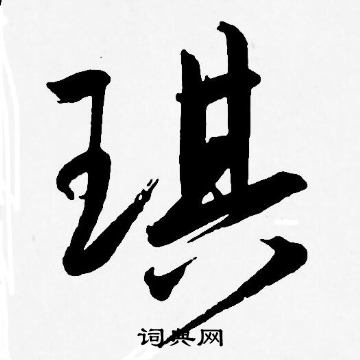 琪
词典网